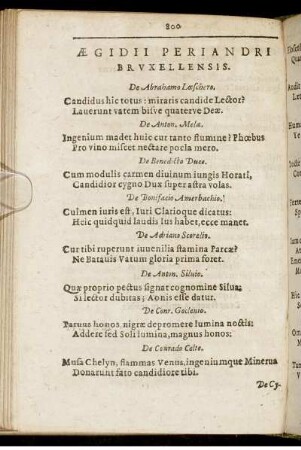 800
ÆGIDII PERIANDRI
BRVXELLENSIS.
De Abrahamo Lœschero.
Candidus hic totus: miraris candide Lector?
Lauerunt vatem bisve quaterve Deæ.
De Anton. Mela.
Ingenium madet huic cur tanto flumine? Phœbus
Pro vino miscet nectare pocla mero.
De Benedicto Duce.
Cum modulis carmen diuinum iungis Horatî,
Candidior cygno Dux super astra volas.
De Bonifacio Amerbachio.
Culmen iuris est, Iuri Clarioque dicatus:
Heic quidquid laudis Ius habet, ecce manet.
De Adriano Scorelio.
Cur tibi ruperunt iuuenilia stamina Parcæ?
Ne Batauis Vatum gloria prima foret.
De Anton. Siluio.
Quæ proprio pectus signat cognomine Silua;
Si lector dubitas; Aonis esse datur.
De Conr. Goclenio.
Paruus honos, nigræ depromere lumina noctis:
Addere sed Soli lumina, magnus honos.
De Conrado Celte.
Musa Chelyn, flammas Venus, ingeniumque Minerua
Donarunt fato candidiore tibi.
De Cy-